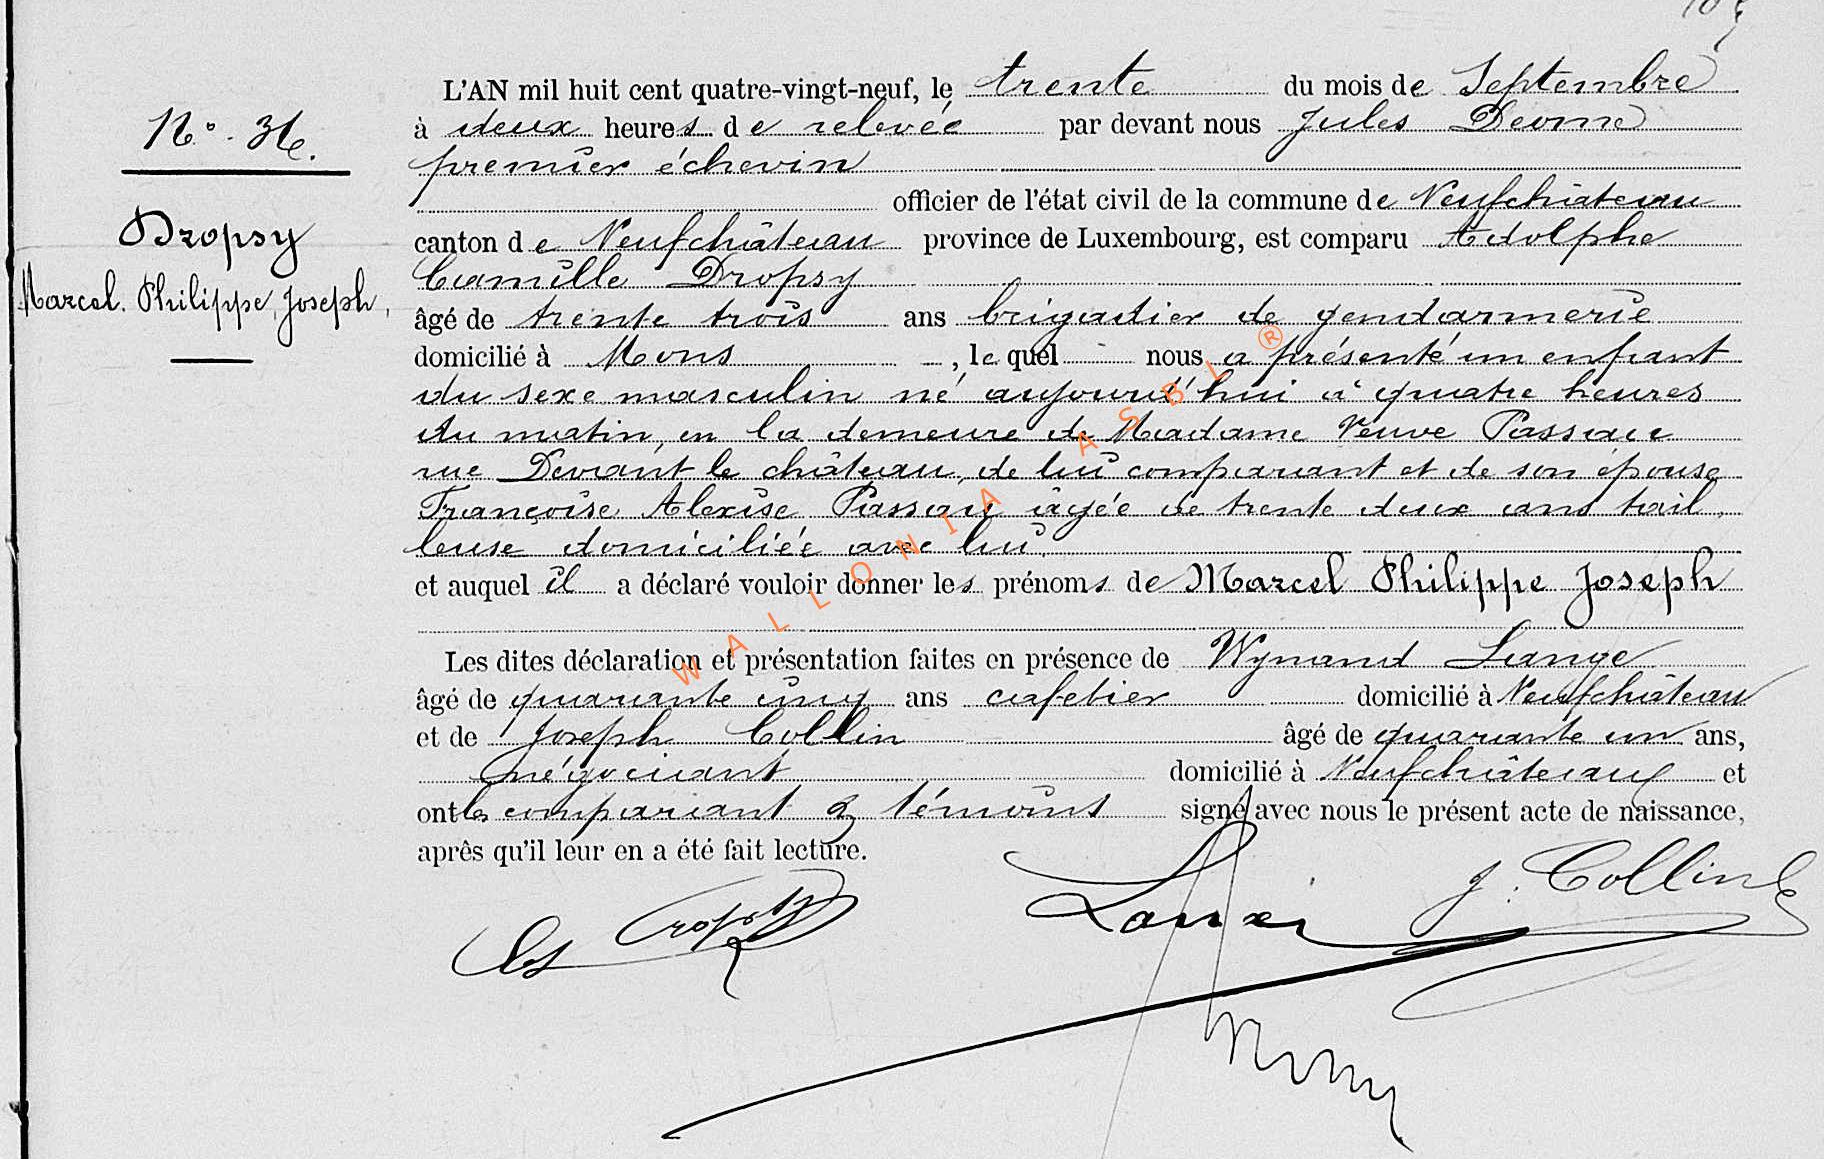 N° 36.
Dropsy
Marcel. Philippe, Joseph,
L'AN mil huit cent quatre-vingt-neuf, le trente du mois de Septembre
à deux heures de relevée par devant nous Jules Deome
premier échevin
officier de l'état civil de la commune de Neufchâteau
canton de Neufchâteau province de Luxembourg, est comparu Adolphe
Camille Dropsy
âgé de trente trois ans brigadier de gendarmerie
domicilié à Mons , le quel nous a présenté un enfant
du sexe masculin né aujourd'hui à quatre heures
du matin, en la demeure de Madame Veuve Passau
rue Devant le château, de lui comparant et de son épouse
Françoise Alexise Passau âgée de trente deux ans tail
leuse domiciliée avec lui.
et auquel il a déclaré vouloir donner les prénoms de Marcel Philippe Joseph
Les dites déclaration et présentation faites en présence de Wynand Lange
âgé de quarante cinq ans cafetier domicilié à Neufchâteau
et de Joseph Collin âgé de quarante un ans,
négociant domicilié à Neufchâteau et
ont les comparant & témoins signé avec nous le présent acte de naissance,
après qu'il leur en a été fait lecture.
Dropsy
J. Collin
WALLONIA ASBL ®